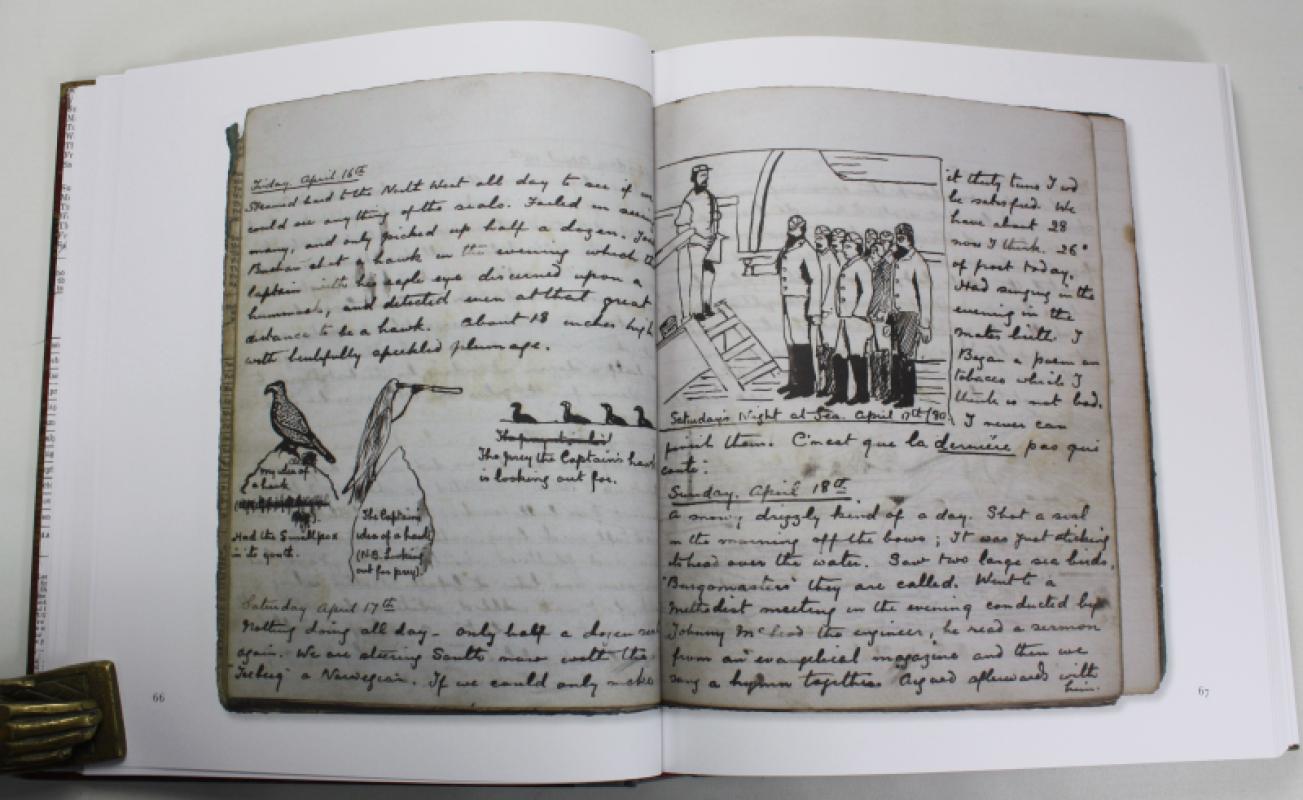 Friday April 16th
Steamed hard to the North West all day to see if we
could see any thing of the seals. Failed in seeing
many, and only picked up half a dozen.
Buchan shot a hawk in the evening which the
Captain with his eagle eye discerned upon a
hummock, and detected even at that great
distance to be a hawk. About 18 inches high
with beautifully speckled plumage.
my idea of
a hawk
Had the Smallpox
in its youth.
The Captain's
idea of a hawk
(N.B. Looking
out for prey).
The prey the Captain's hawk
is looking out for.
Saturday April 17th
Nothing doing all day - only half a dozen
again. We are steering South now with the
"Iceberg" a Norwegian. If we could only make
66
Saturday's Night at Sea. April 17th/80.
it thirty tuns I wd
be satisfied. We
have about 28
now I think. 26°
of frost today.
Had singing in the
evening in the
mates berth. I
Began a poem on
tobacco which I
think is not bad.
I never can
finish them. C'n'est que la dernière pas qui
coute.
Sunday. April 18th.
A snowy, drizzly kind of a day. Shot a seal
in the morning off the bows; It was just sticking
its head over the water. Saw two large sea birds,
"Burgomasters" they are called. Went to a
Methodist meeting in the evening conducted by
Johnny McLeod the engineer, he read a sermon
from an evangelical magazine and then we
sang a hymn together. Argued afterwards with
him.
67